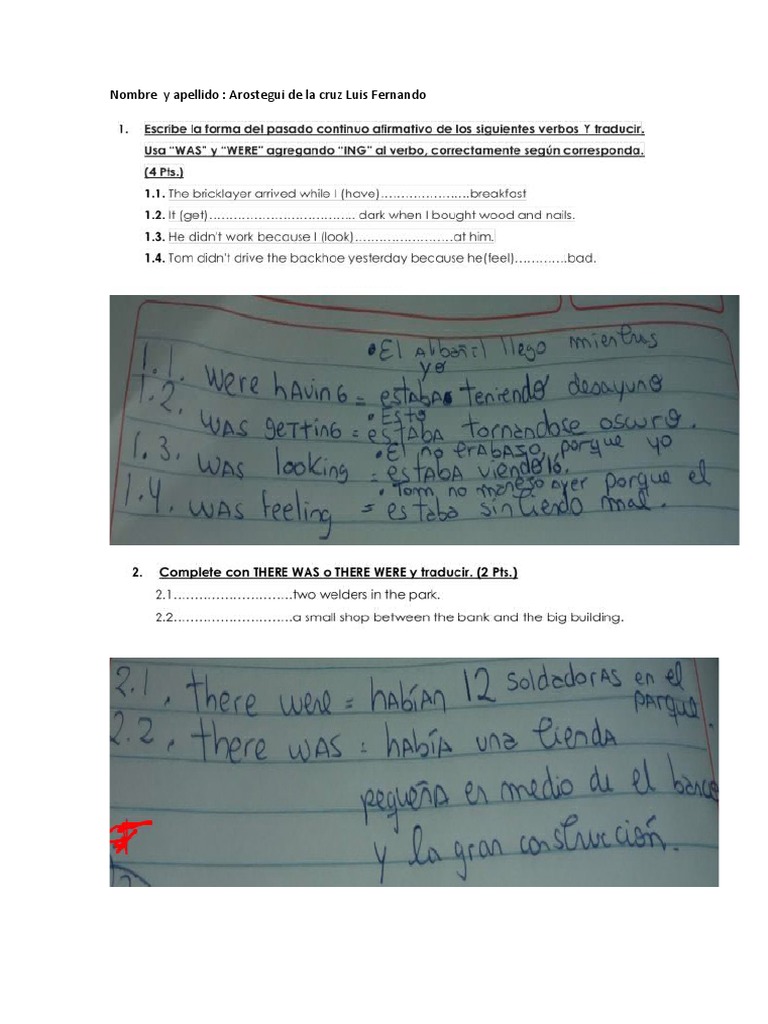 Nombre y apellido : Arostegui de la cruz Luis Fernando
1. Escribe la forma del pasado continuo afirmativo de los siguientes verbos Y traducir.
Usa "WAS" y "WERE" agregando "ING" al verbo, correctamente según corresponda.
(4 Pts.)
1.1. The bricklayer arrived while I (have)………………….breakfast
1.2. It (get)…………………………….. dark when I bought wood and nails.
1.3. He didn't work because I (look)……………………at him.
1.4. Tom didn't drive the backhoe yesterday because he(feel)………….bad.
• El Albañil llego mientras
yo
1.1. were having = estaba teniendo desayuno
• Esto
1.2. was getting = estaba tornandose oscuro.
• El no trabaso, porque yo
1.3. was looking = estaba viendolo.
• Tom, no manejo ayer porque el
1.4. was feeling = estaba sintiendo mal.
2. Complete con THERE WAS o THERE WERE y traducir. (2 Pts.)
2.1………………………..two welders in the park.
2.2………………………..a small shop between the bank and the big building.
2.1. there were = habían 12 soldadoras en el
parque.
2.2. there was = había una tienda
pequeña en medio de el banco
y la gran construcción.